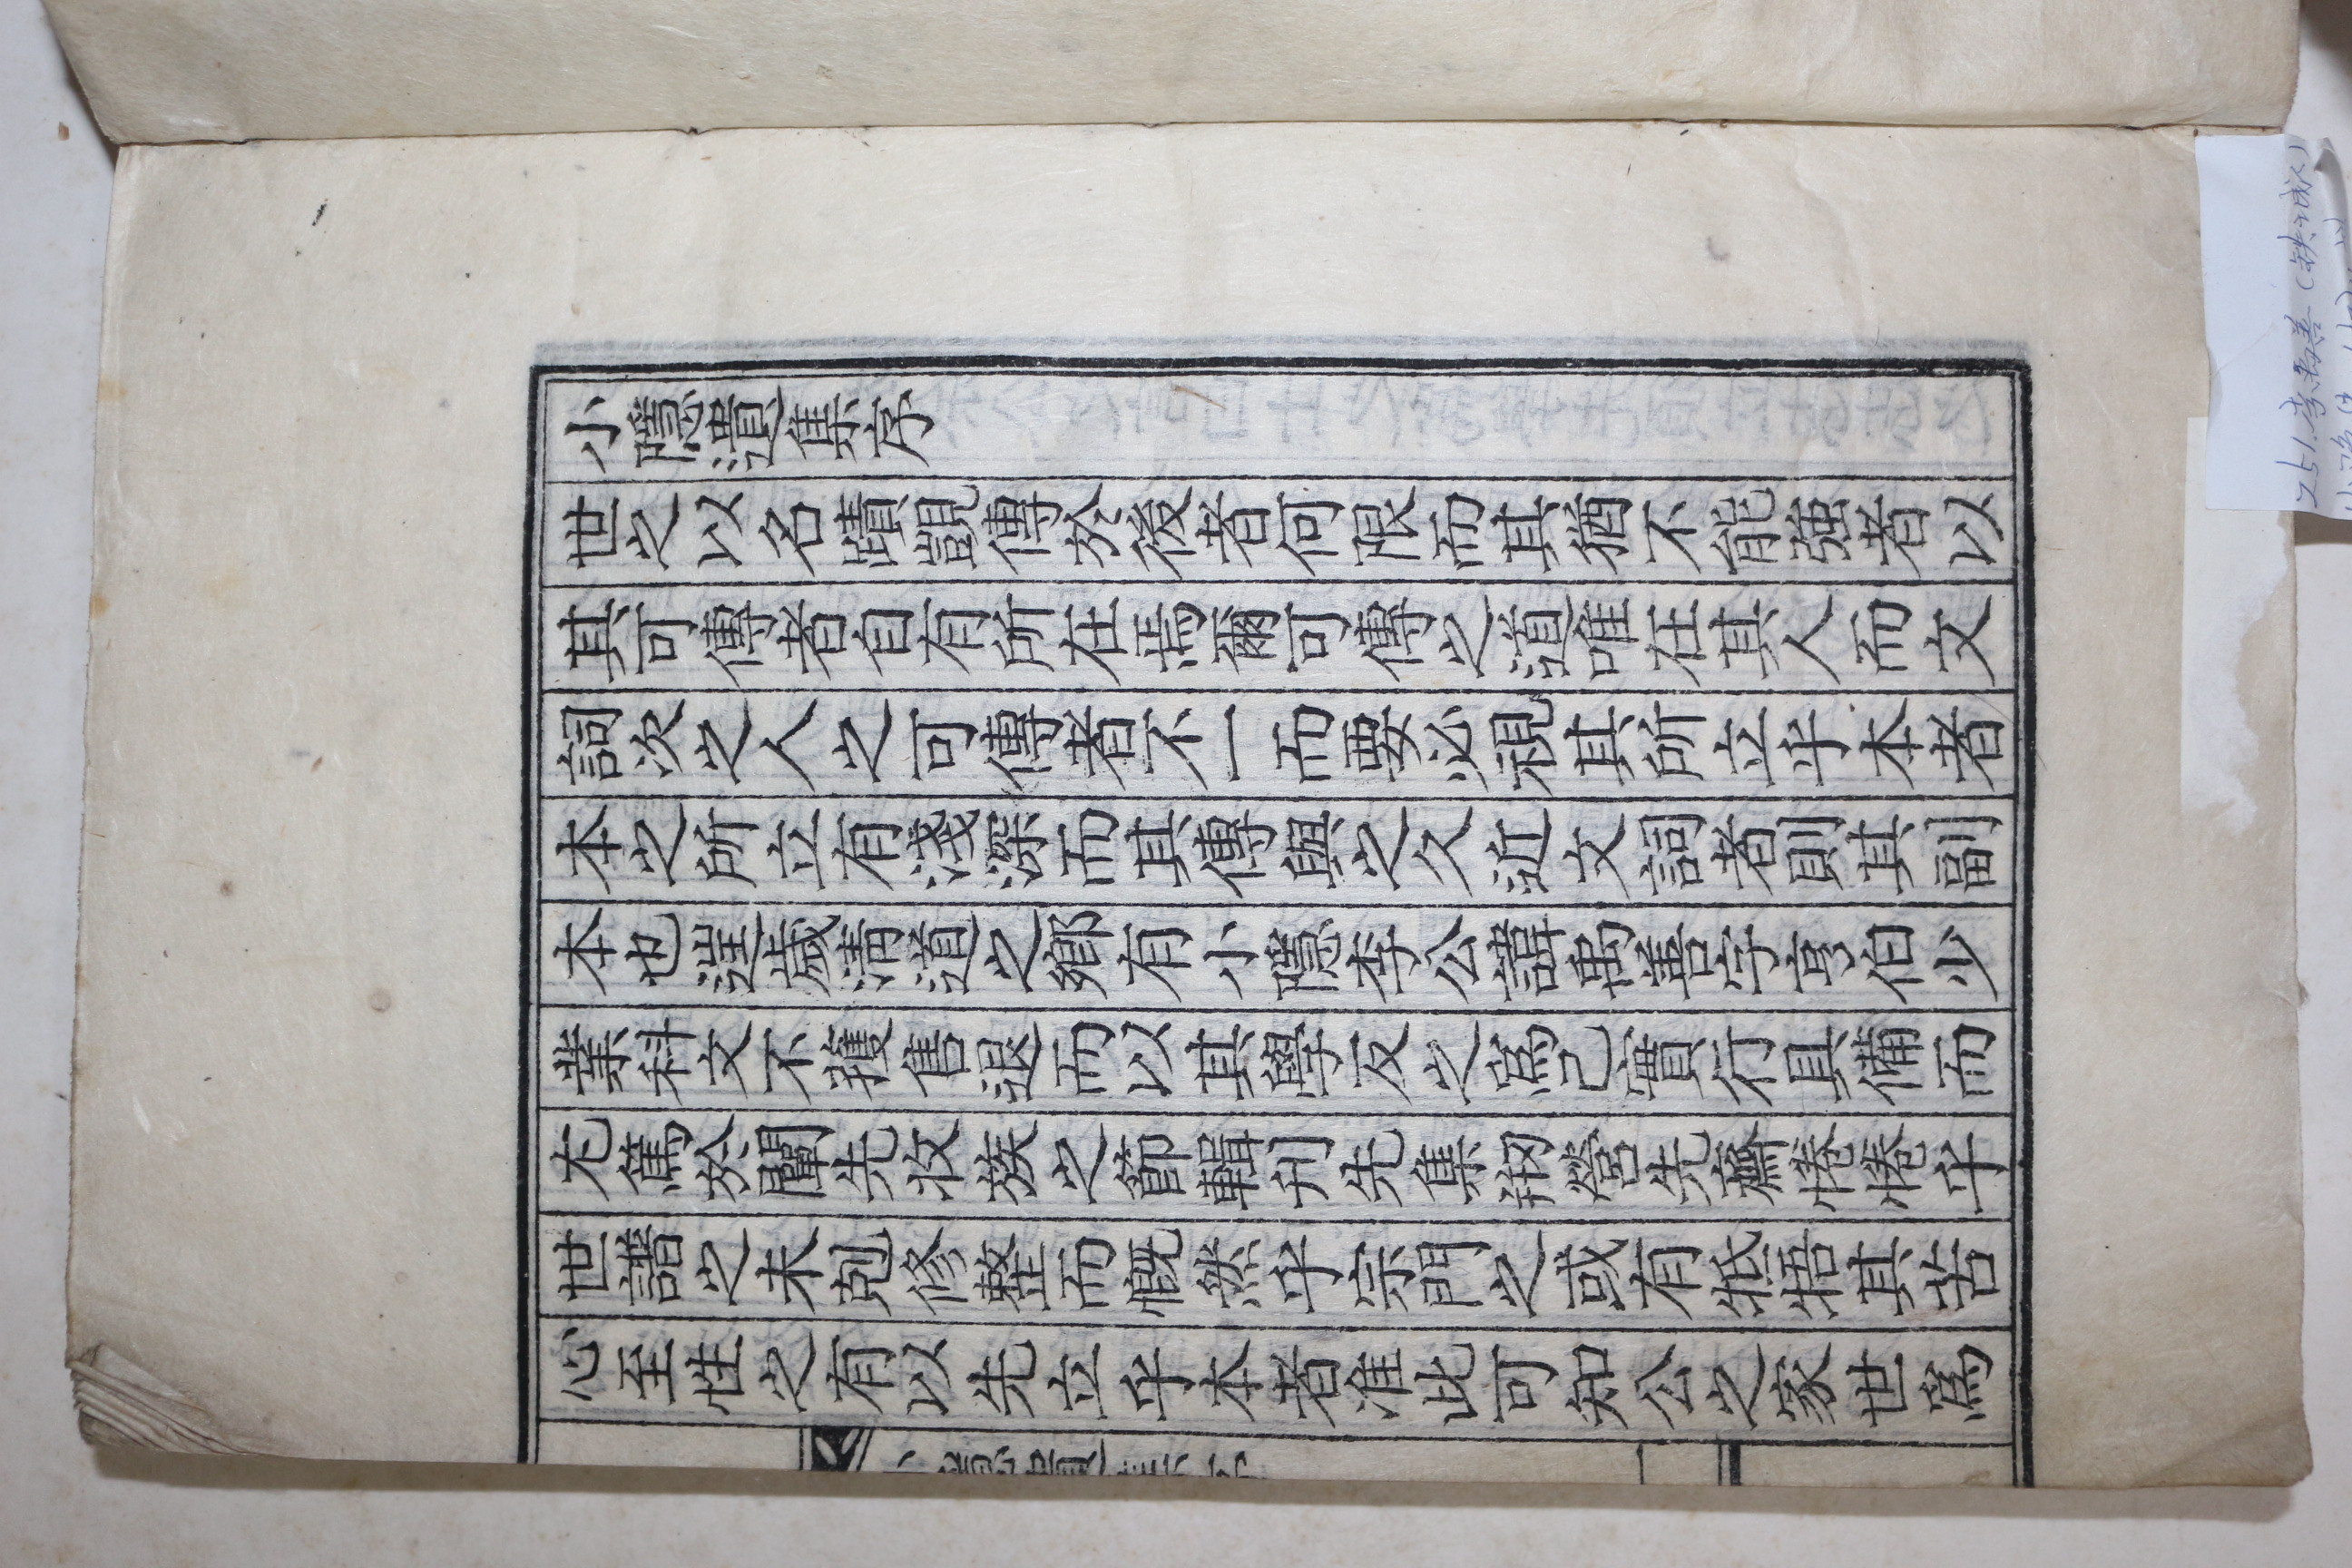 小隱遺集序
世之以名蹟覬傳於後者何限而其猶不能強者以
其可傳者自有所在焉爾可傳之道唯在其人而文
詞次之人之可傳者不一而要必視其所立乎本者
本之所立有淺深而其傳與之久近文詞者則其副
本也逞歲淸道之鄕有小隱李公諱禹善字亨伯少
業科文不獲售退而以其學反之爲己實行具備而
尤篤於闡先收族之節輯刊先集刱營先齋惓惓乎
世譜之未剋修整而慨然乎宗門之或有牴牾其苦
心至性之有以先立乎本者准此可知公之家世爲
小隱遺集序
一
251.李禹善(铁城人)